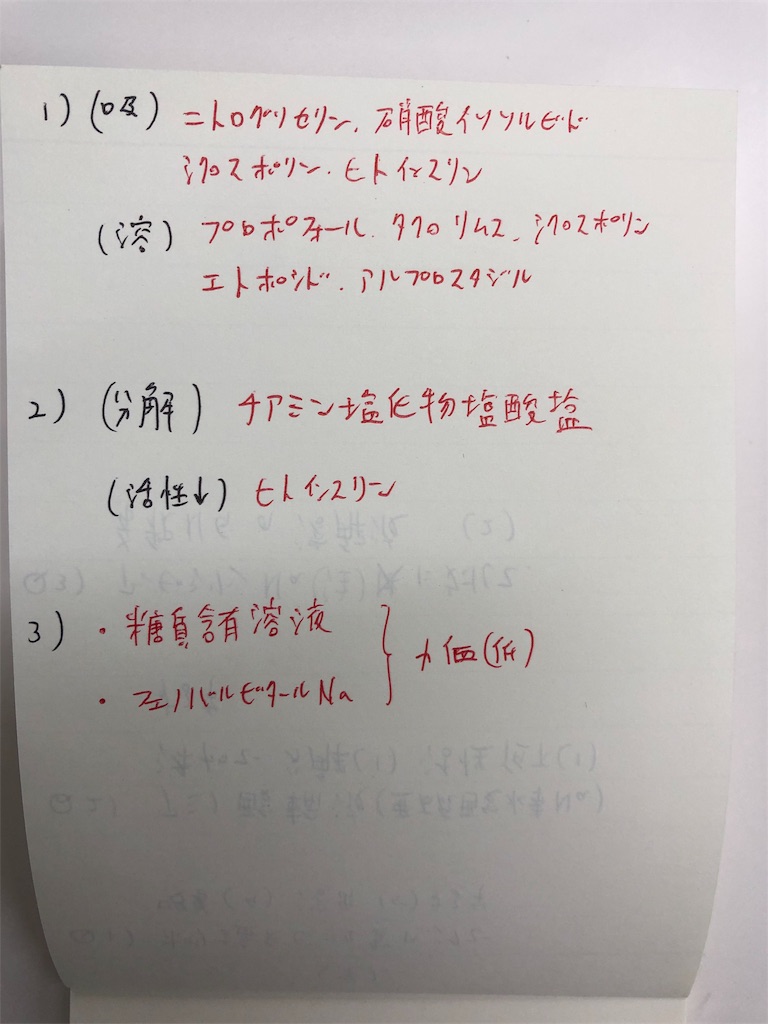 1) (吸) ニトログリセリン、硝酸イソソルビド
シクロスポリン、ヒトインスリン
(溶) プロポフォール、タクロリムス、シクロスポリン
エトポシド、アルプロスタジル
2) (分解) チアミン塩化物塩酸塩
(活性↓) ヒトインスリン
3) ・糖質含有溶液
・フェノバルビタールNa } 力価(低)